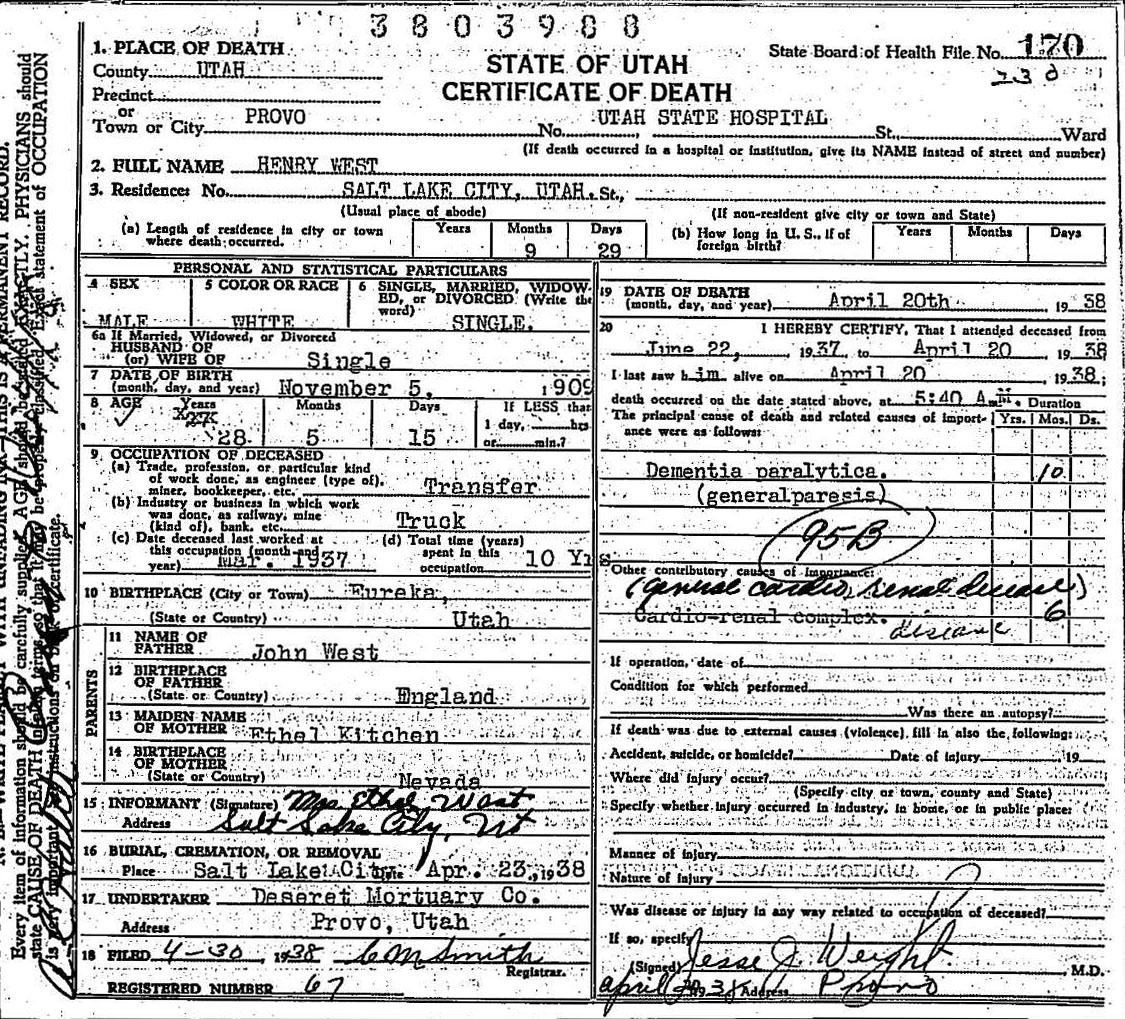 3803988
1. PLACE OF DEATH
County UTAH
Precinct
or
Town or City PROVO
STATE OF UTAH
CERTIFICATE OF DEATH
State Board of Health File No. 170
230
No. UTAH STATE HOSPITAL St., Ward
(If death occurred in a hospital or institution, give its NAME instead of street and number)
2. FULL NAME HENRY WEST
3. Residence: No. SALT LAKE CITY, UTAH. St.,
(Usual place of abode) (If non-resident give city or town and State)
(a) Length of residence in city or town where death occurred. Years Months 9 Days 29
(b) How long in U. S., if of foreign birth? Years Months Days
PERSONAL AND STATISTICAL PARTICULARS
4 SEX MALE
5 COLOR OR RACE WHITE
6 SINGLE, MARRIED, WIDOWED, or DIVORCED (Write the word) SINGLE.
6a If Married, Widowed, or Divorced
HUSBAND OF
(or) WIFE OF Single
7 DATE OF BIRTH
(month, day, and year) November 5, 1909
8 AGE Years 28 Months 5 Days 15 If LESS than 1 day, hrs or min.?
9 OCCUPATION OF DECEASED
(a) Trade, profession, or particular kind
of work done, as engineer (type of),
miner, bookkeeper, etc. Transfer
(b) Industry or business in which work
was done, as railway, mine
(kind of), bank, etc. Truck
(c) Date deceased last worked at
this occupation (month and
year) Mar. 1937
(d) Total time (years)
spent in this
occupation 10 Yrs
10 BIRTHPLACE (City or Town) Eureka,
(State or Country) Utah
PARENTS
11 NAME OF
FATHER John West
12 BIRTHPLACE
OF FATHER
(State or Country) England
13 MAIDEN NAME
OF MOTHER Ethel Kitchen
14 BIRTHPLACE
OF MOTHER
(State or Country) Nevada
15 INFORMANT (Signature) Mrs Ethel West
Address Salt Lake City, Ut
16 BURIAL, CREMATION, OR REMOVAL
Place Salt Lake City Apr. 23, 1938
17 UNDERTAKER Deseret Mortuary Co.
Address Provo, Utah
18 FILED 4-30, 1938 C M Smith
Registrar.
REGISTERED NUMBER 67
19 DATE OF DEATH
(month, day, and year) April 20th 1938
20 I HEREBY CERTIFY, That I attended deceased from
June 22, 1937 to April 20, 1938
I last saw him alive on April 20 1938;
death occurred on the date stated above, at 5:40 A.M. Duration
The principal cause of death and related causes of importance were as follows: Yrs. Mos. Ds.
Dementia paralytica. 10
(generalparesis)
95B
Other contributory causes of importance:
(general cardio, renal disease)
Cardio-renal complex. 6
disease
If operation, date of
Condition for which performed
Was there an autopsy?
If death was due to external causes (violence), fill in also the following:
Accident, suicide, or homicide? Date of injury 19
Where did injury occur?
(Specify city or town, county and State)
Specify whether injury occurred in industry, in home, or in public place:
Manner of injury
Nature of injury
Was disease or injury in any way related to occupation of deceased?
If so, specify
(Signed) Jesse J. Weight M.D.
April 1938 Address Provo
Every item of information should be carefully supplied. AGE should be stated EXACTLY. PHYSICIANS should
state CAUSE OF DEATH in plain terms, so that it may be properly classified. Exact statement of OCCUPATION
is very important. instructions on back of certificate.